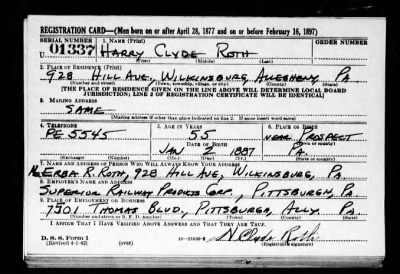 REGISTRATION CARD—(Men born on or after April 28, 1877 and on or before February 16, 1897)
SERIAL NUMBER 1. NAME (Print) ORDER NUMBER
U 01337 HARRY CLYDE ROTH
(First) (Middle) (Last)
2. PLACE OF RESIDENCE (Print)
928 HILL AVE, WILKINSBURG, ALLEGHENY PA
(Number and street) (Town, township, village, or city) (County) (State)
[THE PLACE OF RESIDENCE GIVEN ON THE LINE ABOVE WILL DETERMINE LOCAL BOARD
JURISDICTION; LINE 2 OF REGISTRATION CERTIFICATE WILL BE IDENTICAL]
3. MAILING ADDRESS
SAME
[Mailing address if other than place indicated on line 2. If same insert word same]
4. TELEPHONE 5. AGE IN YEARS 6. PLACE OF BIRTH
PE.5545 55 NEAR PROSPECT
DATE OF BIRTH (Town or county)
JAN 2 1887 PA.
(Exchange) (Number) (Mo.) (Day) (Yr.) (State or country)
7. NAME AND ADDRESS OF PERSON WHO WILL ALWAYS KNOW YOUR ADDRESS
ERBA R. ROTH, 928 HILL AVE, WILKINSBURG, PA
8. EMPLOYER'S NAME AND ADDRESS
SUPERIOR RAILWAY PRODUCTS CORP., PITTSBURGH, PA.
9. PLACE OF EMPLOYMENT OR BUSINESS
7501 THOMAS BLVD., PITTSBURGH, ALLY. PA
(Number and street or R. F. D. number) (Town) (County) (State)
I AFFIRM THAT I HAVE VERIFIED ABOVE ANSWERS AND THAT THEY ARE TRUE.
D. S. S. Form 1
(Revised 4-1-42) (over) H. Clyde Roth
(Registrant's signature)